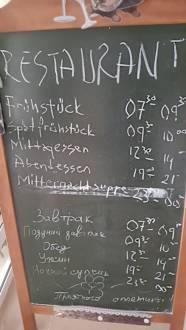 RESTAURANT
Frühstück 07³⁰ 09³⁰
Spätfrühstück 09³⁰ 10⁰⁰
Mittagessen 12³⁰ 14⁻
Abendessen 19⁻ 21⁻
Mitternachtsuppe 23⁻ 00⁻
Завтрак 07³⁰ 09³⁰
Поздний завтрак 09³⁰ 10⁻
Обед 12³⁰ 14⁻
Ужин 19⁻ 21⁻
Ночной суп 23⁻ 00⁻
Приятного аппетита!